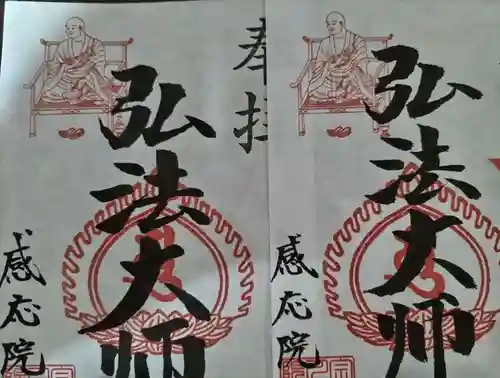 奉拝
弘法大師
感応院
弘法大師
感応院